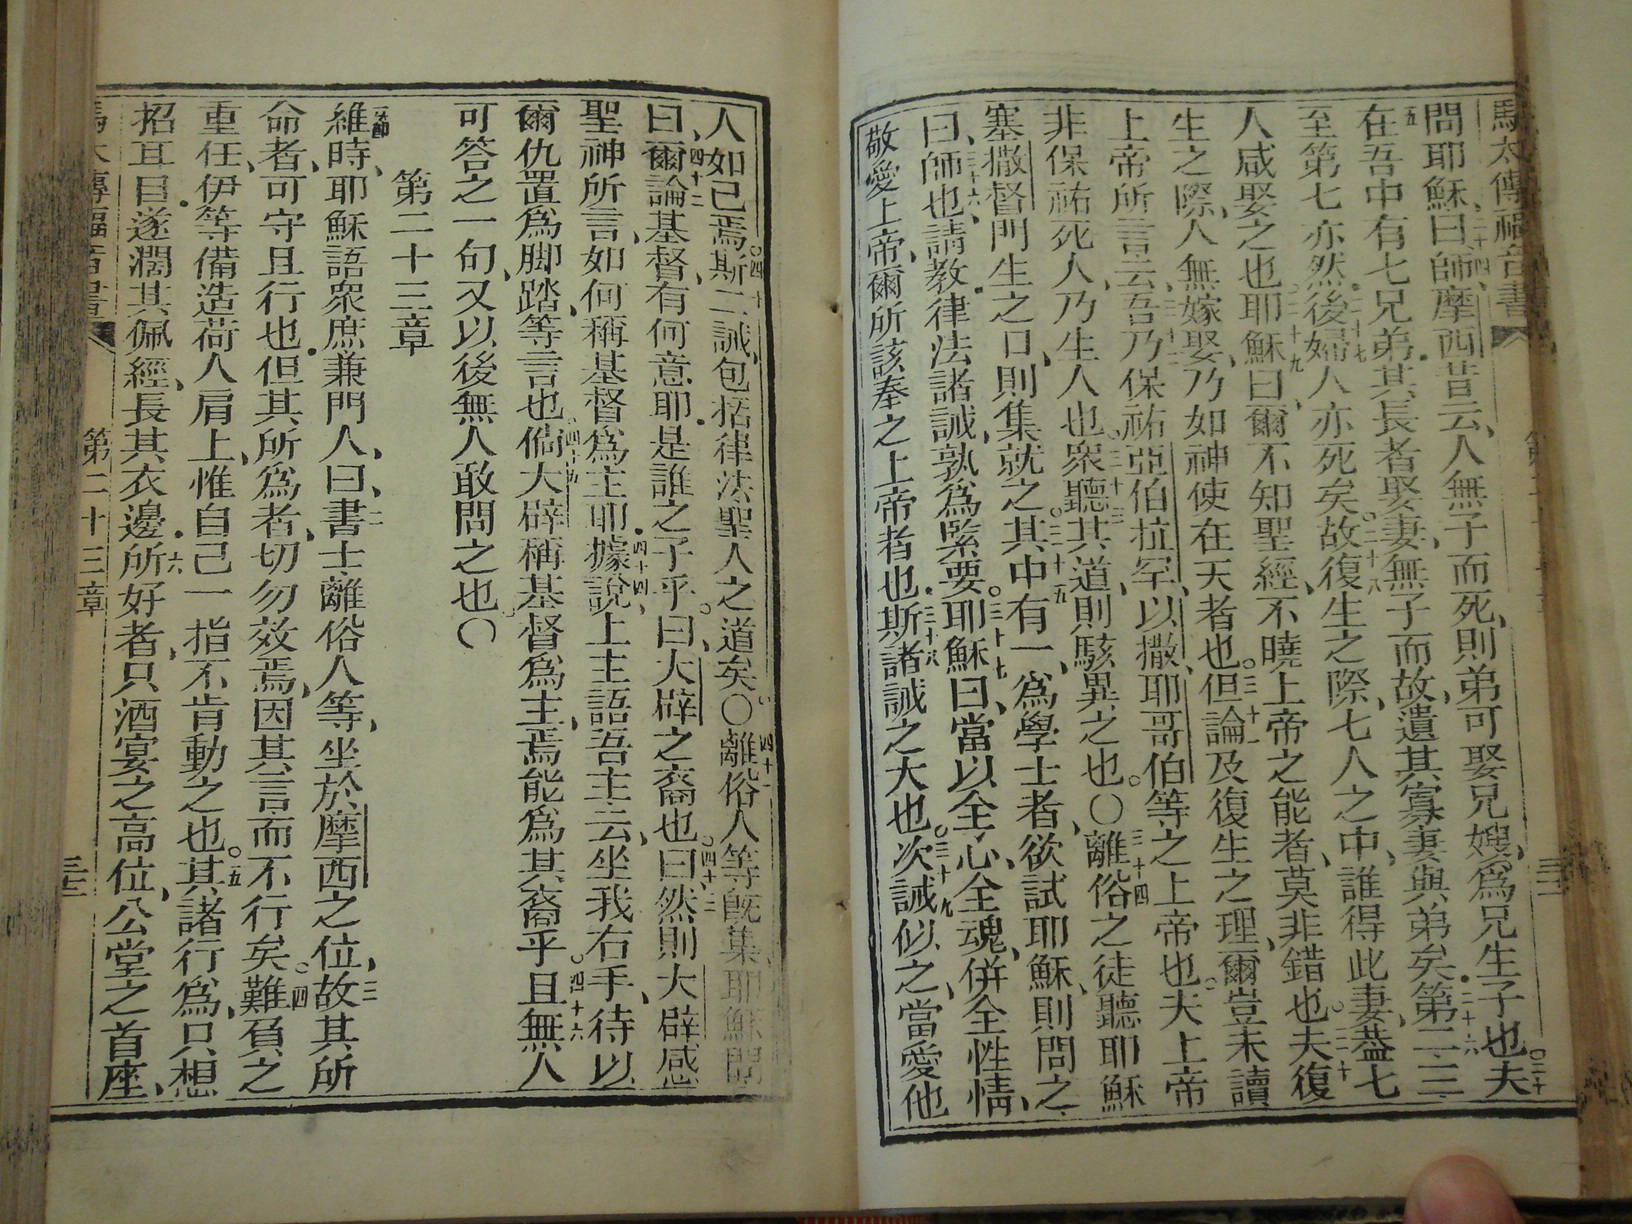 馬太傳福音書
問耶穌、曰師、摩西昔云、人無子而死、則弟可娶兄嫂、爲兄生子也。夫二十四二十
五在吾中有七兄弟、其長者娶妻、無子而故、遺其寡妻與弟矣。第二三二十六
至第七亦然。後婦人亦死矣。故復生之際、七人之中、誰得此妻、葢七二十七二十八
人咸娶之也。耶穌曰、爾不知聖經、不曉上帝之能者、莫非錯也。夫復二十九三十
生之際、人無嫁娶、乃如神使在天者也。但論及復生之理、爾豈未讀三十一
上帝所言云、吾乃保祐亞伯拉罕、以撒、耶哥伯等之上帝也。夫上帝三十二
非保祐死人、乃生人也。眾聽其道、則駭異之也。〇離俗之徒聽耶穌三十三三十四
塞撒督門生之口、則集就之。其中有一、爲學士者、欲試耶穌、則問之三十五
曰、師也、請教、律法諸誡、孰爲緊要。耶穌曰、當以全心、全魂、併全性情、三十六三十七
敬愛上帝、爾所該奉之上帝者也。斯諸誡之大也。次誡似之、當愛他三十八三十九
人如己焉。斯二誡、包括律法聖人之道矣。〇離俗人等旣集、耶穌問四十四十一
曰、爾論基督、有何意耶。是誰之子乎。曰、大辟之裔也。曰、然則大辟感四十二四十三
聖神所言、如何稱基督爲主耶。據說、上主語吾主云、坐我右手、待以四十四
爾仇置爲脚踏、等言也。倘大辟稱基督爲主、焉能爲其裔乎。且無人四十五四十六
可答之一句、又以後無人敢問之也。〇
第二十三章
一節維時、耶穌語眾庶兼門人、曰、書士離俗人等、坐於摩西之位、故其所二三
命者、可守且行也。但其所爲者、切勿效焉、因其言而不行矣。難負之四
重任、伊等備造荷人肩上、惟自己一指不肯動之也。其諸行爲只想五
招耳目、遂濶其佩經、長其衣邊。所好者、只酒宴之高位、公堂之首座、六
第二十三章